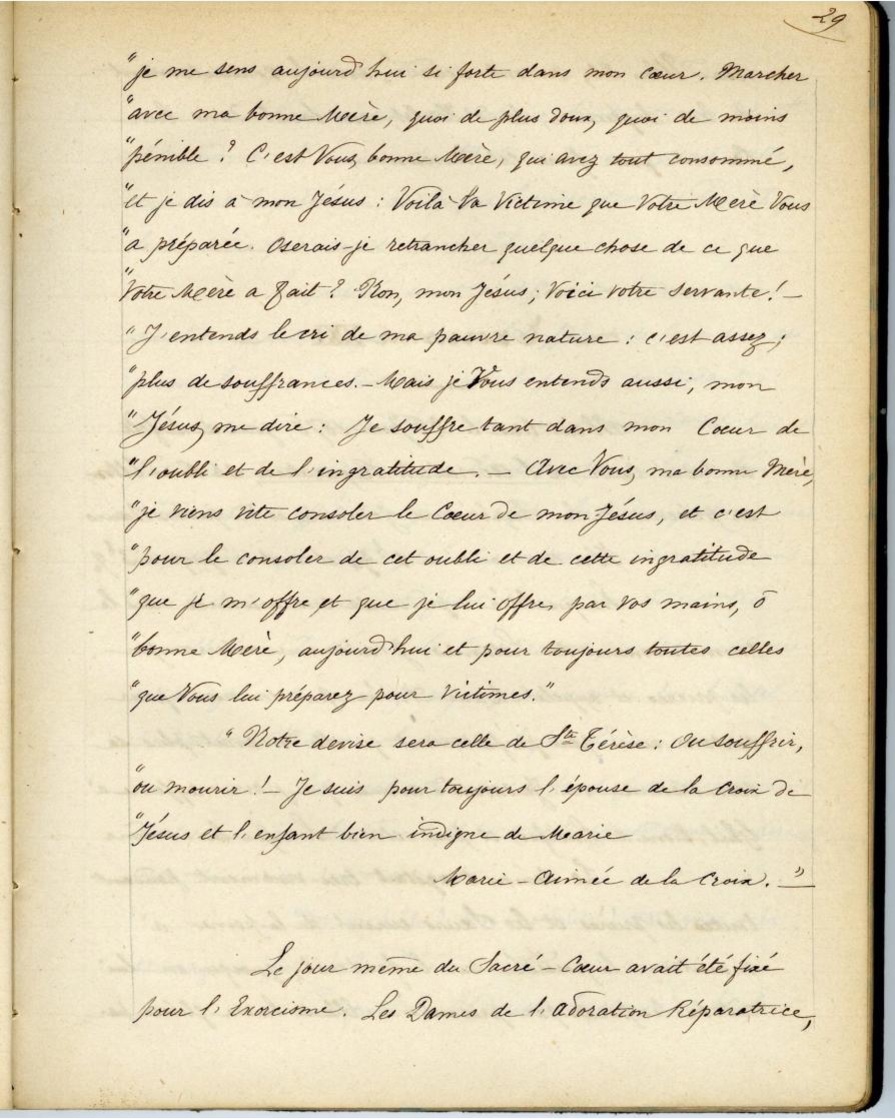 29
"je me sens aujourd'hui si forte dans mon cœur. Marcher
"avec ma bonne Mère, quoi de plus doux, quoi de moins
"pénible ? C'est Vous, bonne Mère, qui avez tout consommé,
"et je dis à mon Jésus : Voilà la Victime que Votre Mère Vous
"a préparée. Oserais-je retrancher quelque chose de ce que
"Votre Mère a fait ? Non, mon Jésus ; Voici votre servante ! –
"J'entends le cri de ma pauvre nature : c'est assez ;
"plus de souffrances. – Mais je Vous entends aussi, mon
"Jésus, me dire : Je souffre tant dans mon Cœur de
"l'oubli et de l'ingratitude. – Avec Vous, ma bonne Mère,
"je viens vite consoler le Cœur de mon Jésus, et c'est
"pour le consoler de cet oubli et de cette ingratitude
"que je m'offre et que je lui offre, par vos mains, ô
"bonne Mère, aujourd'hui et pour toujours toutes celles
"que Vous lui préparez pour victimes."
"Notre devise sera celle de Ste Térèse : Ou souffrir,
"ou mourir ! – Je suis pour toujours l'épouse de la Croix de
"Jésus et l'enfant bien indigne de Marie
Marie-Aimée de la Croix. "–
Le jour même du Sacré-Cœur avait été fixé
pour l'Exorcisme. Les Dames de l'Adoration Réparatrice,